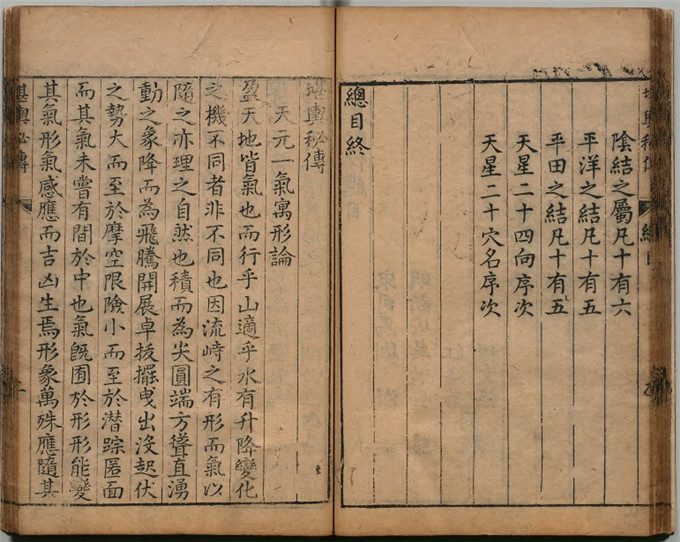 堪輿秘傳 總目
陰結之屬凡十有六
平洋之結凡十有五
平田之結凡十有五
天星二十四向序次
天星二十穴名序次
總目終
堪輿秘傳
天元一氣寓形論
盈天地皆氣也而行乎山適乎水有升降變化
之機不同者非不同也因流峙之有形而氣以
隨之亦理之自然也積而為尖圓端方聳直湧
動之象降而為飛騰開展卓拔擺曳出沒起伏
之勢大而至於摩空限險小而至於潜踪匿面
而其氣未嘗有間於中也氣既囿於形形能變
其氣形氣感應而吉凶生焉形象萬殊應隨其
堪輿秘傳